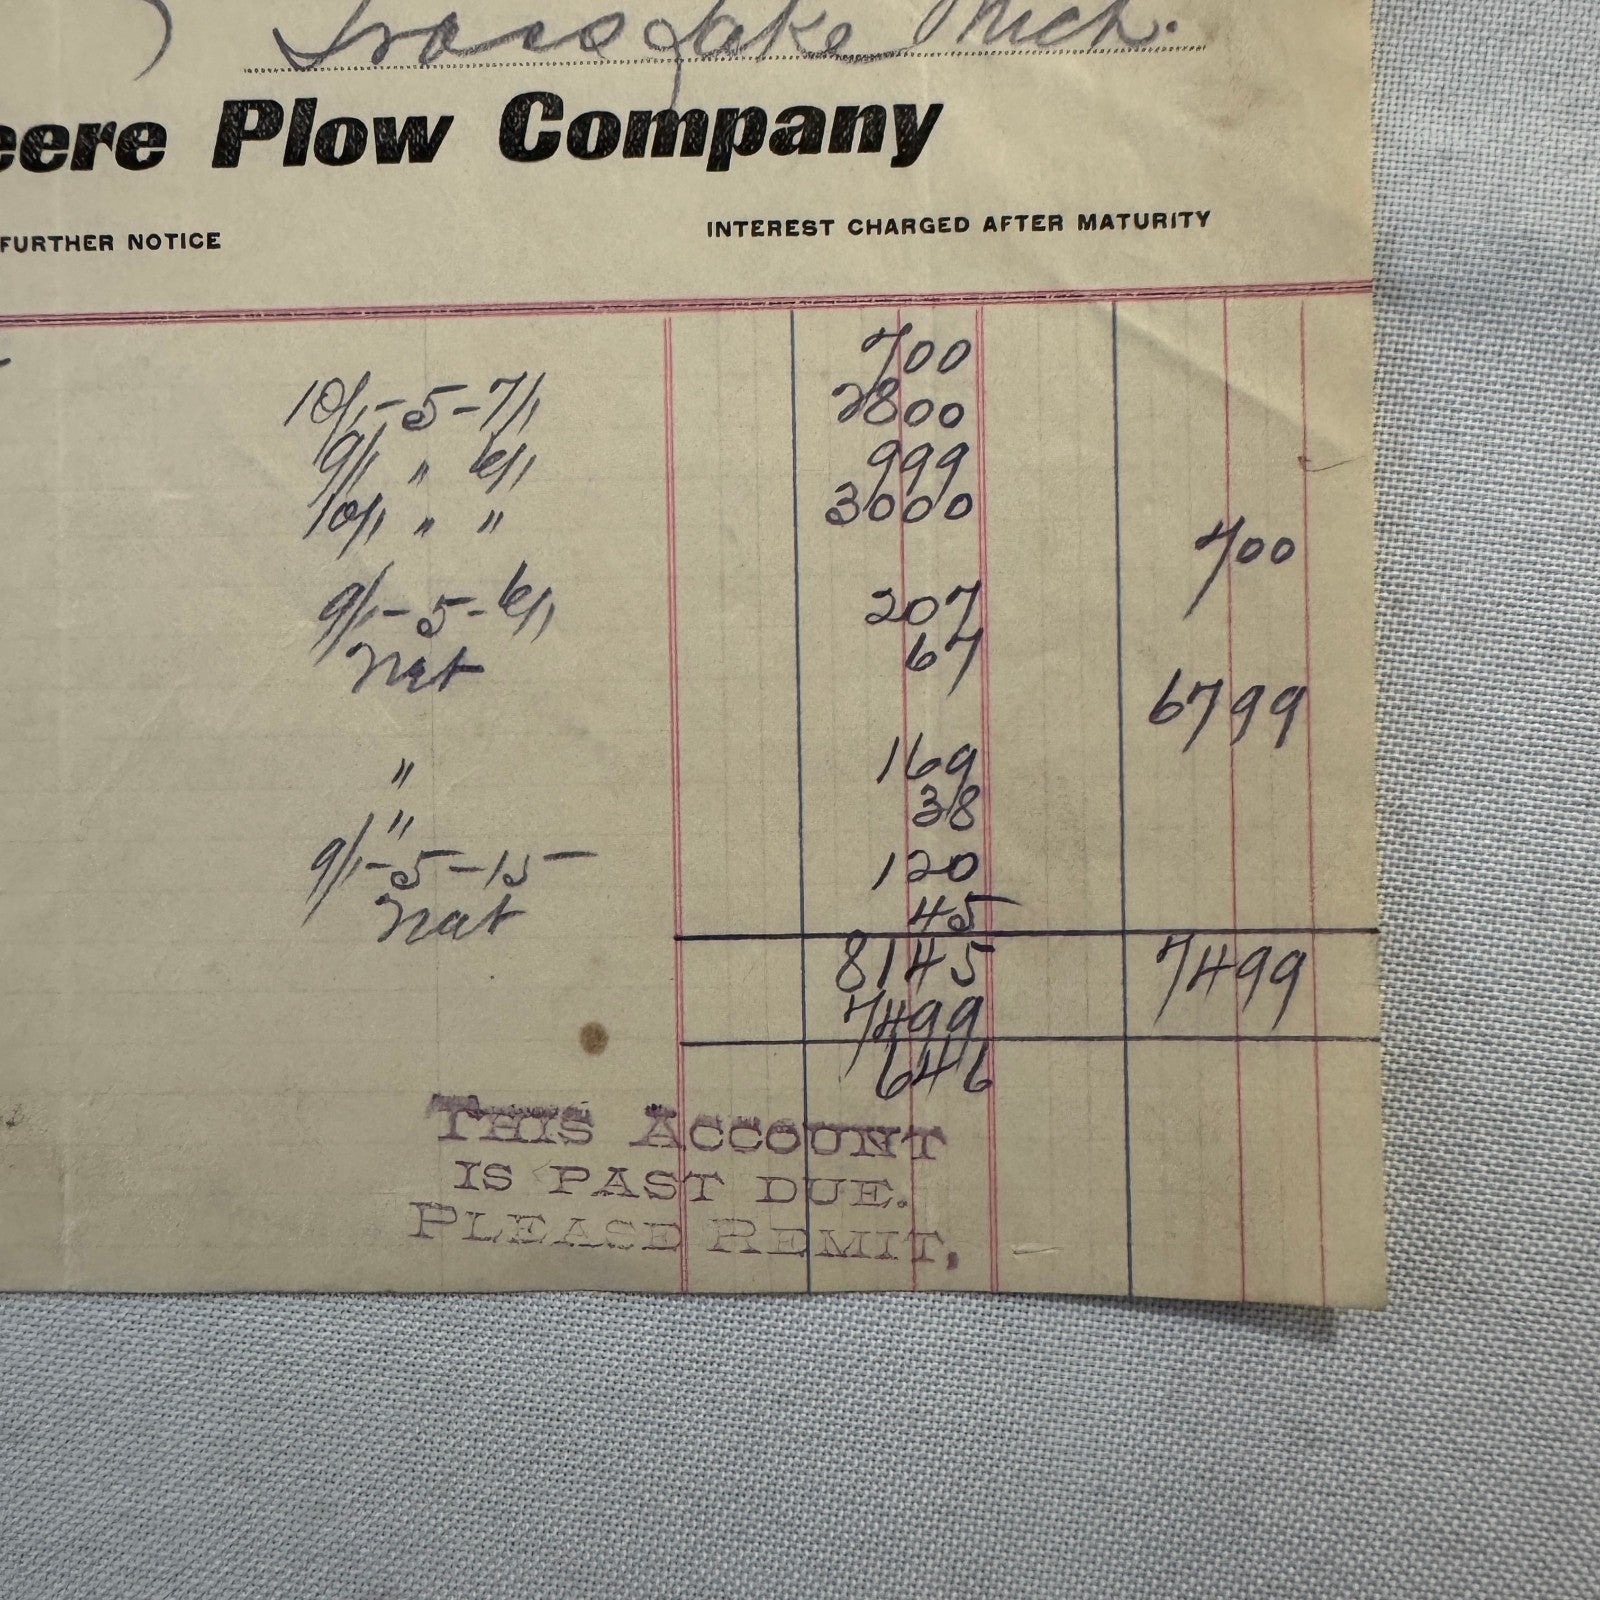 Lake Mich.
eere Plow Company
FURTHER NOTICE INTEREST CHARGED AFTER MATURITY
700
10/1-5-7/1 2800
9/1 " 6/1 999
10/1 " " 3000
700
9/1-5-6/1 207
Net 67
6799
" 169
" 38
9/1-5-15 120
Net 45
8145 7499
7499
646
THIS ACCOUNT
IS PAST DUE.
PLEASE REMIT.